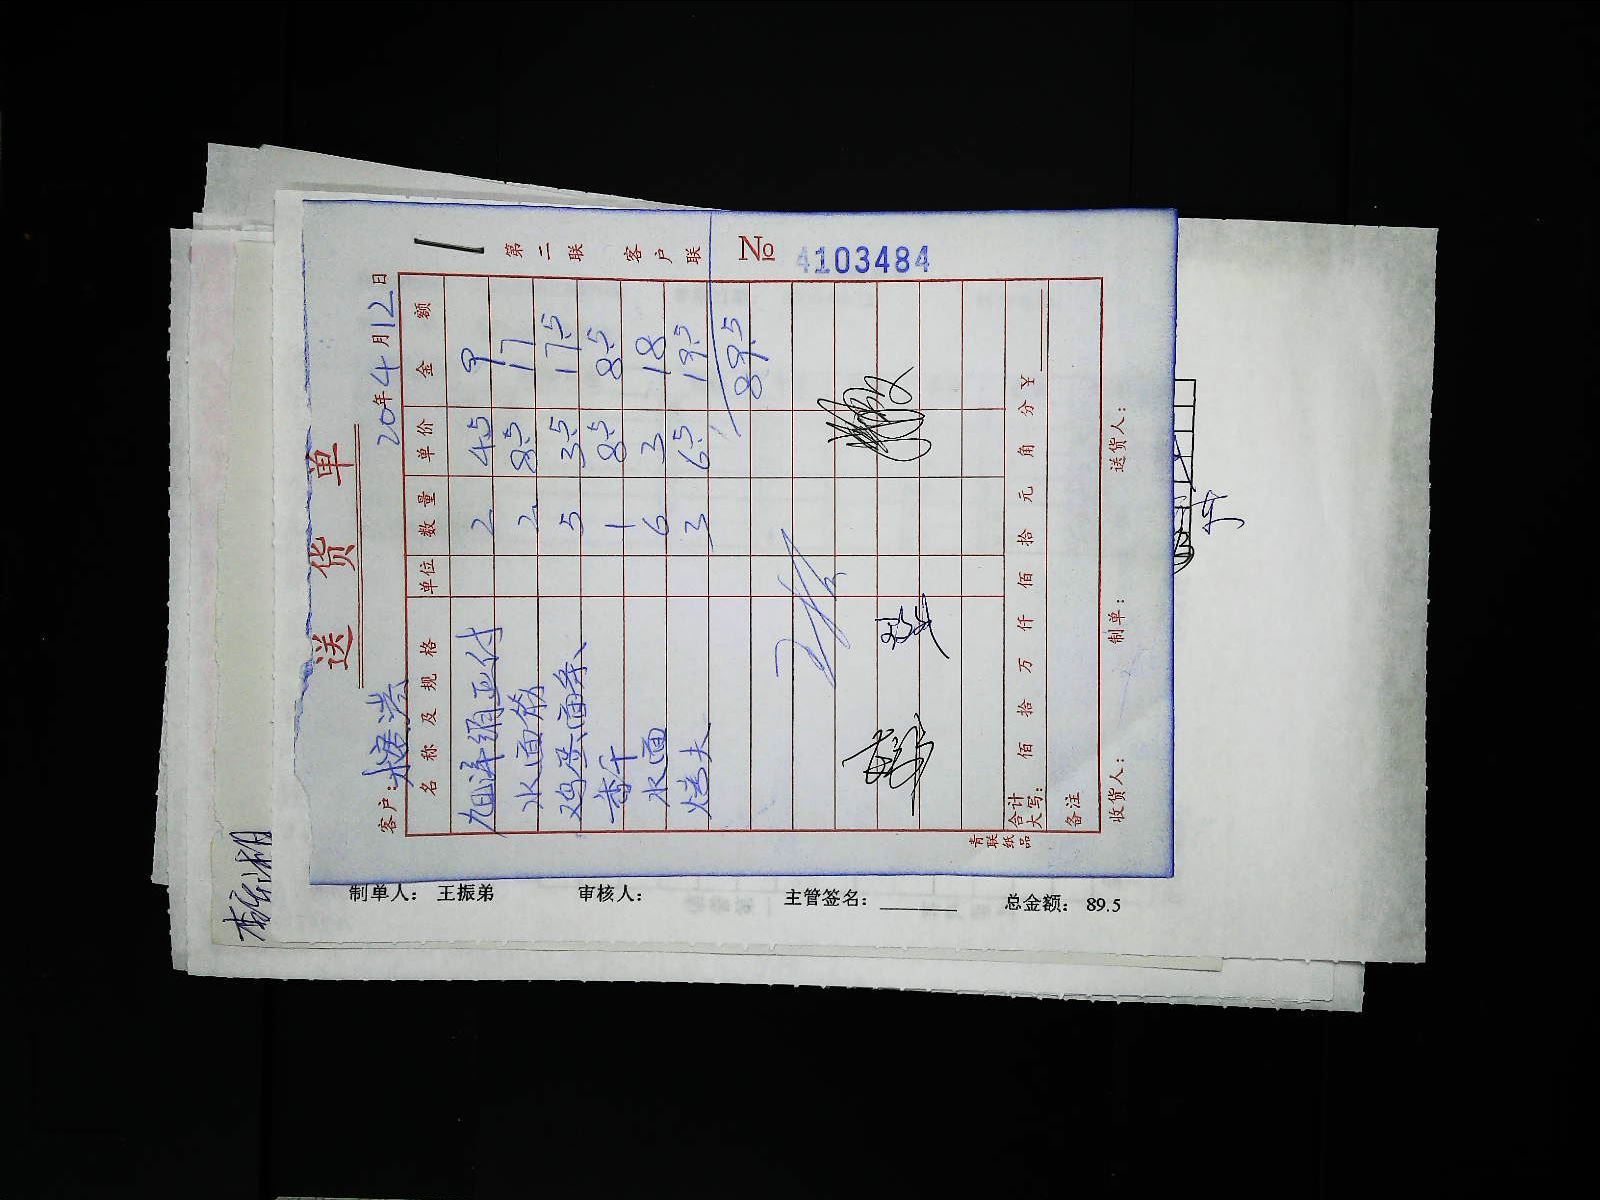 送货单
客户:
20年4月12日
№ 4103484
第二联 客户联
名称及规格 单位 数量 单价 金额
2 4.5 9
水面筋 2 8.5 17
鸡蛋面条 5 3.5 17.5
香干 1 8.5 8.5
水面 6 3 18
烤夫 3 6.5 19.5
89.5
合计大写: 佰 拾 万 仟 佰 拾 元 角 分 ¥
备注
收货人: 制单: 送货人:
青联纸品
制单人: 王振弟 审核人: 主管签名: 总金额: 89.5